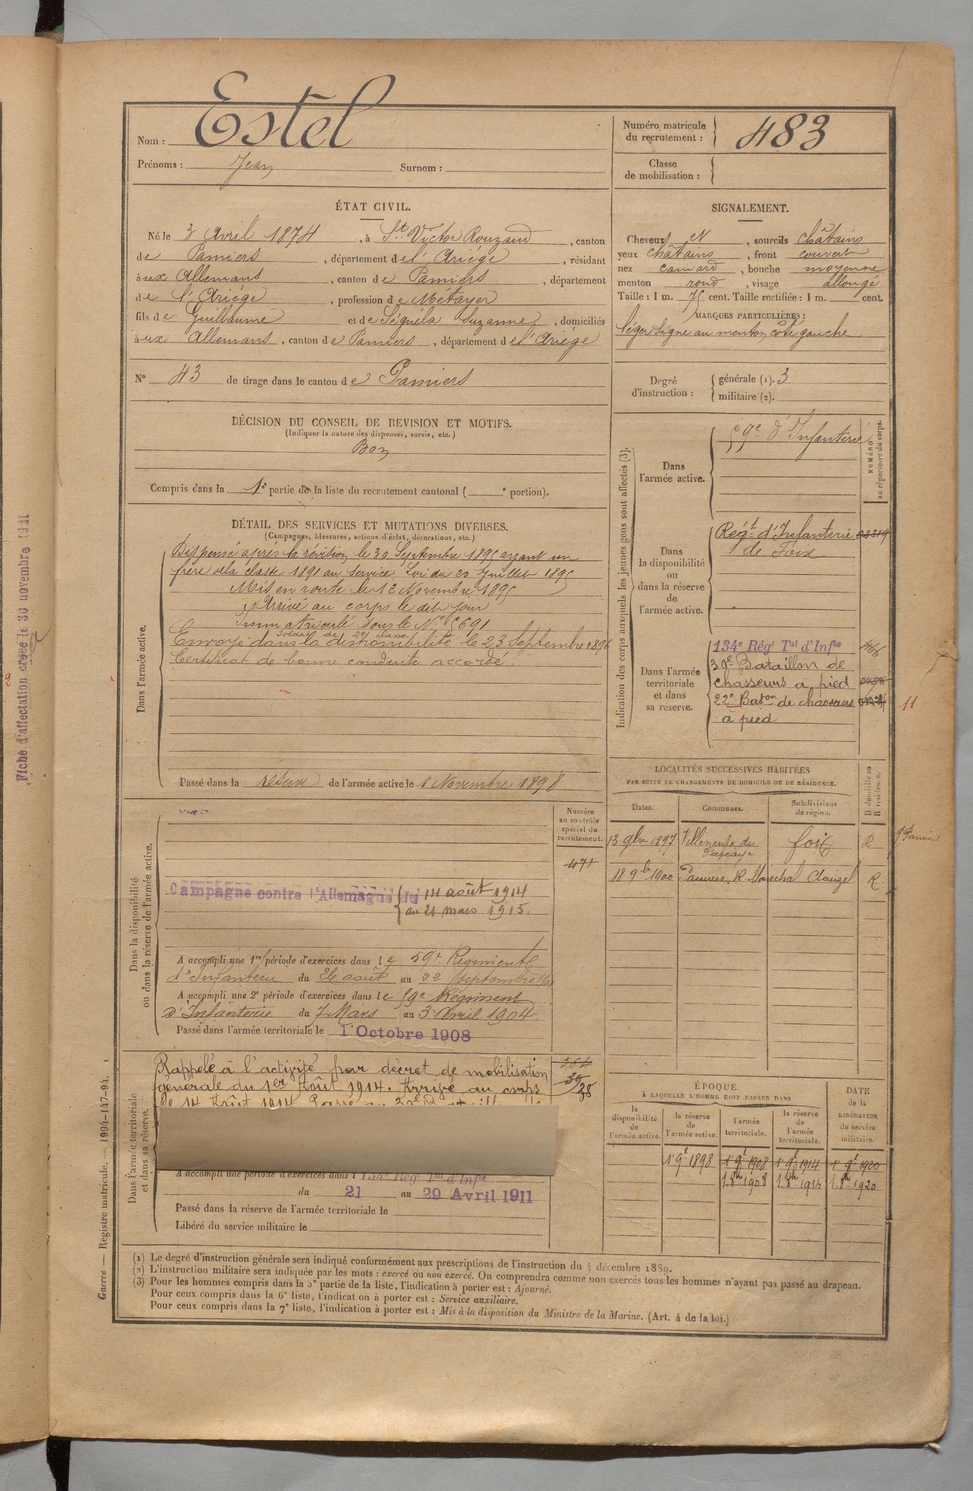 Estel
Nom :
Prénoms : Jean Surnom :
Numéro matricule du recrutement : 483
Classe de mobilisation :
ÉTAT CIVIL.
Né le 3 Avril 1874, à St Victor Rouzaud, canton
de Pamiers, département de l'Ariège, résidant
à ux Allemans, canton de Pamiers, département
de l'Ariège, profession de Métayer
fils de Guillaume et de Séguéla Suzanne, domiciliés
à ux Allemans, canton de Pamiers, département de l'Ariège
N° 43 de tirage dans le canton de Pamiers
SIGNALEMENT.
Cheveux et, sourcils châtains
yeux châtains, front couvert
nez camard, bouche moyenne
menton rond, visage allongé
Taille : 1 m. 75 cent. Taille rectifiée : 1 m. cent.
MARQUES PARTICULIÈRES :
Léger signe au menton, côté gauche
Degré d'instruction : générale (1). 3
militaire (2).
DÉCISION DU CONSEIL DE REVISION ET MOTIFS.
(Indiquer la nature des dispenses, sursis, etc.)
Bon
Compris dans la 1e partie de la liste du recrutement cantonal ( e portion).
DÉTAIL DES SERVICES ET MUTATIONS DIVERSES.
(Campagnes, blessures, actions d'éclat, décorations, etc.)
Dans l'armée active.
Dispensé après la révision, le 30 Septembre 1895 ayant un
frère de la classe 1891 au Service Loi du 20 Juillet 1895
Mis en route le 12 Novembre 1895
Arrivé au corps le dit jour
immatriculé sous le N°
Soldat de 2e classe
Envoyé dans la disponibilité le 23 Septembre 1896
Certificat de bonne conduite accordé.
Passé dans la réserve de l'armée active le 1 Novembre 1898
Indication des corps auxquels les jeunes gens sont affectés (3).
NUMÉRO au répertoire du corps.
Dans l'armée active.
59e d'Infanterie
Dans la disponibilité ou dans la réserve de l'armée active.
Régt d'Infanterie
de Foix
Dans l'armée territoriale et dans sa réserve.
134e Régt Tal d'Infie
30e Bataillon de
chasseurs à pied
22e Baton de chasseurs
à pied
11
LOCALITÉS SUCCESSIVES HABITÉES
PAR SUITE DE CHANGEMENTS DE DOMICILE OU DE RÉSIDENCE.
Dates. Communes. Subdivisions de région. D domicile ou R résidence.
13 9bre 1897 Villeneuve du Paréage foix R
18 9bre 1900 Pamiers, R. Maréchal Clauzel R
Dans la disponibilité ou dans la réserve de l'armée active.
Numéro au contrôle spécial du recrutement.
471
Campagne contre l'Allemagne du 14 août 1914
au 21 mars 1915.
A accompli une 1re période d'exercices dans le 59e Régiment
d'Infanterie du 26 août au 22 Septembre
A accompli une 2e période d'exercices dans le 59e Régiment
d'Infanterie du 7 Mars au 3 Avril 1904
Passé dans l'armée territoriale le 1 Octobre 1908
Dans l'armée territoriale et dans sa réserve.
Rappelé à l'activité par décret de mobilisation
générale du 1er Août 1914. Arrivé au corps
le 14 Août 1914.
A accompli une période d'exercices dans l 134e Régt Tal d'Infie
du 21 au 29 Avril 1911
Passé dans la réserve de l'armée territoriale le
Libéré du service militaire le
ÉPOQUE
À LAQUELLE L'HOMME DOIT PASSER DANS
la disponibilité de l'armée active. la réserve de l'armée active. l'armée territoriale. la réserve de l'armée territoriale. DATE de la LIBÉRATION du service militaire.
1 9bre 1898 1 9bre 1908 1 9bre 1914 1 9bre 1920
1 8bre 1908 1 8bre 1914 1 8bre 1920
(1) Le degré d'instruction générale sera indiqué conformément aux prescriptions de l'instruction du 4 décembre 1889.
(2) L'instruction militaire sera indiquée par les mots : exercé ou non exercé. On comprendra comme non exercés tous les hommes n'ayant pas passé au drapeau.
(3) Pour les hommes compris dans la 5e partie de la liste, l'indication à porter est : Ajourné.
Pour ceux compris dans la 6e liste, l'indication à porter est : Service auxiliaire.
Pour ceux compris dans la 7e liste, l'indication à porter est : Mis à la disposition du Ministre de la Marine. (Art. 4 de la loi.)
Guerre — Registre matricule. — 1994-147-94.
Fiche d'affectation créée le 30 novembre 1921